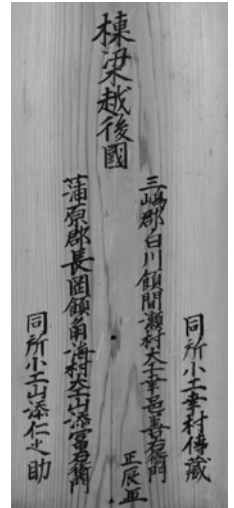 棟梁越後國
同所小工幸村傳藏
三嶋郡白川領間瀬村大工幸邑善右衛門
正辰
蒲原郡長岡領角海村大工山添冨右衛門
同所小工山添仁之助